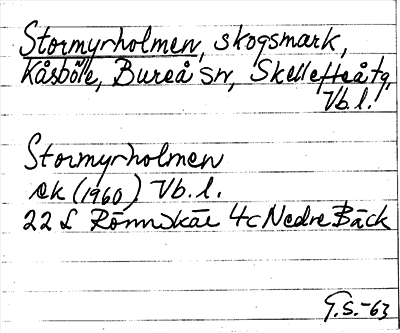 Stormyrholmen, skogsmark,
Kåsböle, Bureå sn, Skellefteå tg,
Vb.l.
Stormyrholmen
ek (1960) Vb.l.
22 L Rönnskär 4c Nedre Bäck
G.S.-63